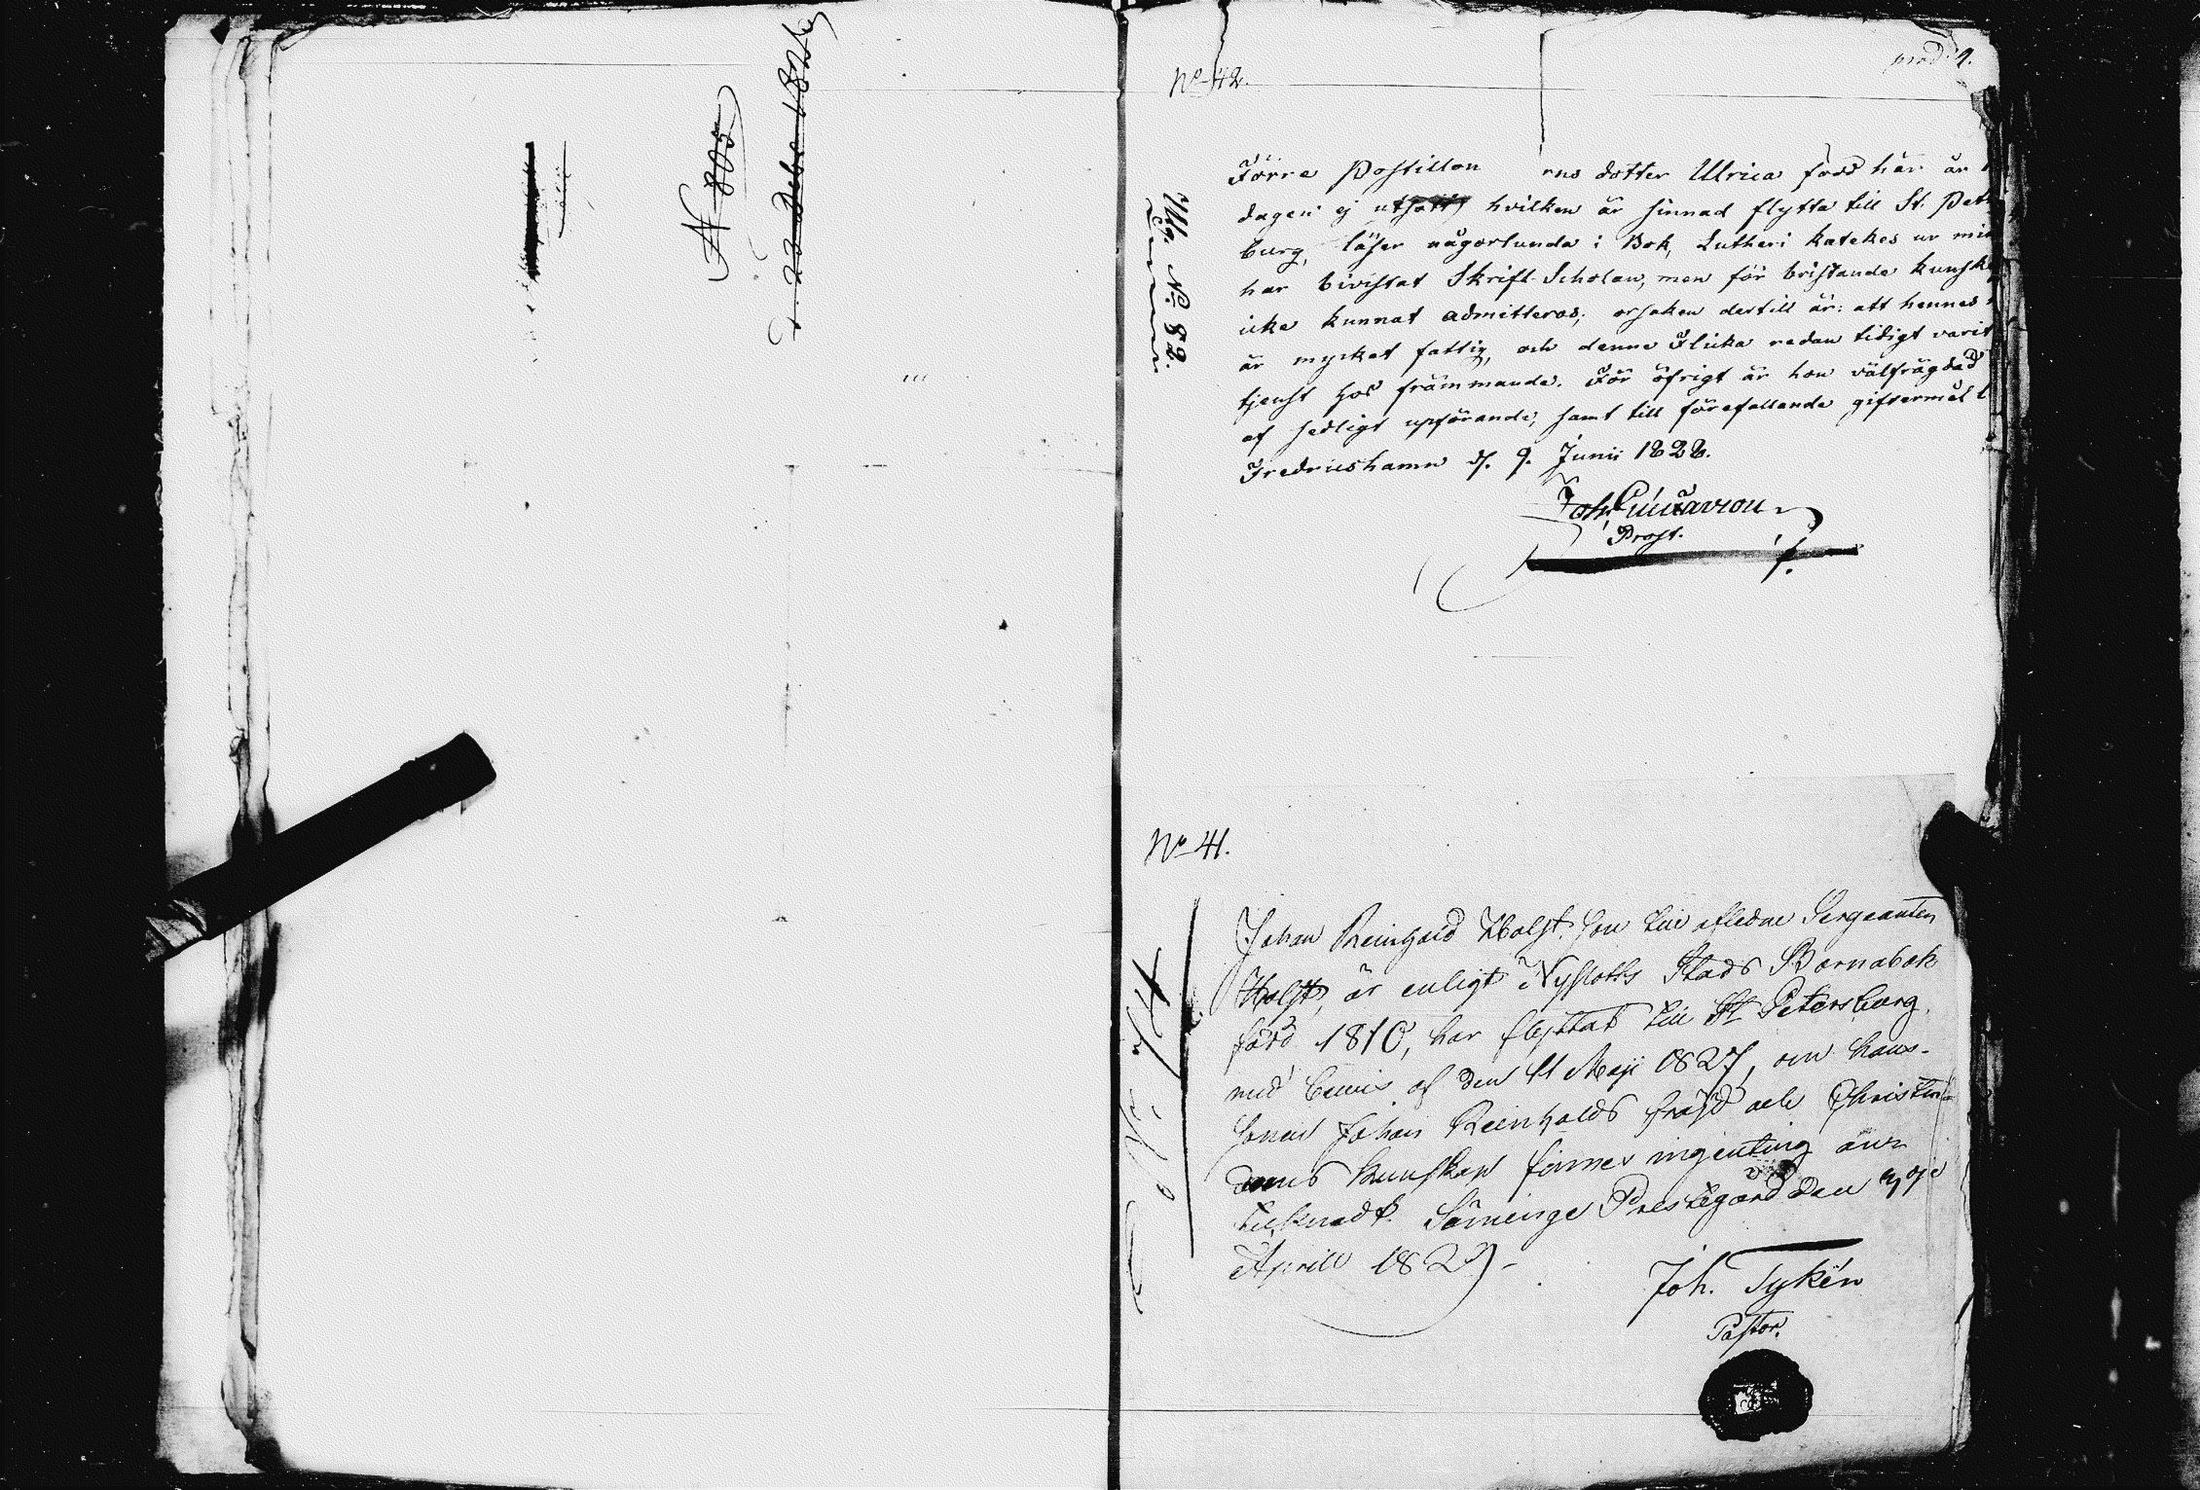 N 805
d. 23 Debr 1828
No 42.
prod. 9.
Utg. No 82.
Förre Postillon rns dotter Ulrica född här år
dagen ej utsatt, hvilken är sinnad flytta till St. Pet
burg, läser någorlunda i Bok, Lutheri katekes ur min
har bivistat Skrift-Scholan, men för bristande kunsk
icke kunnat admitteras; orsaken dertill är: att hennes
är mycket fattig, och denne Flicka redan tidigt varit
tjenst hos främmande. För öfrigt är hon välfrägdad
af sedligt upförande, samt till förefallande giftermål l
Fredricshamn d. 9. Junii 1828.
Joh. 
Prost.
No 41.
Johan Reinhold Holst, son till aflidne Sergeanten
Holst, är enligt Nyslotts Stads Barnabok
född 1810, har flyttat till St Petersburg
med bevis af den 11 Maji 1827, om hans
Johan Reinholds fräjd och Christen
doms kunskap finnes ingenting an
tecknadt. Säminge Prestegård den
Aprill 1829
Joh. Tykén
Pastor.